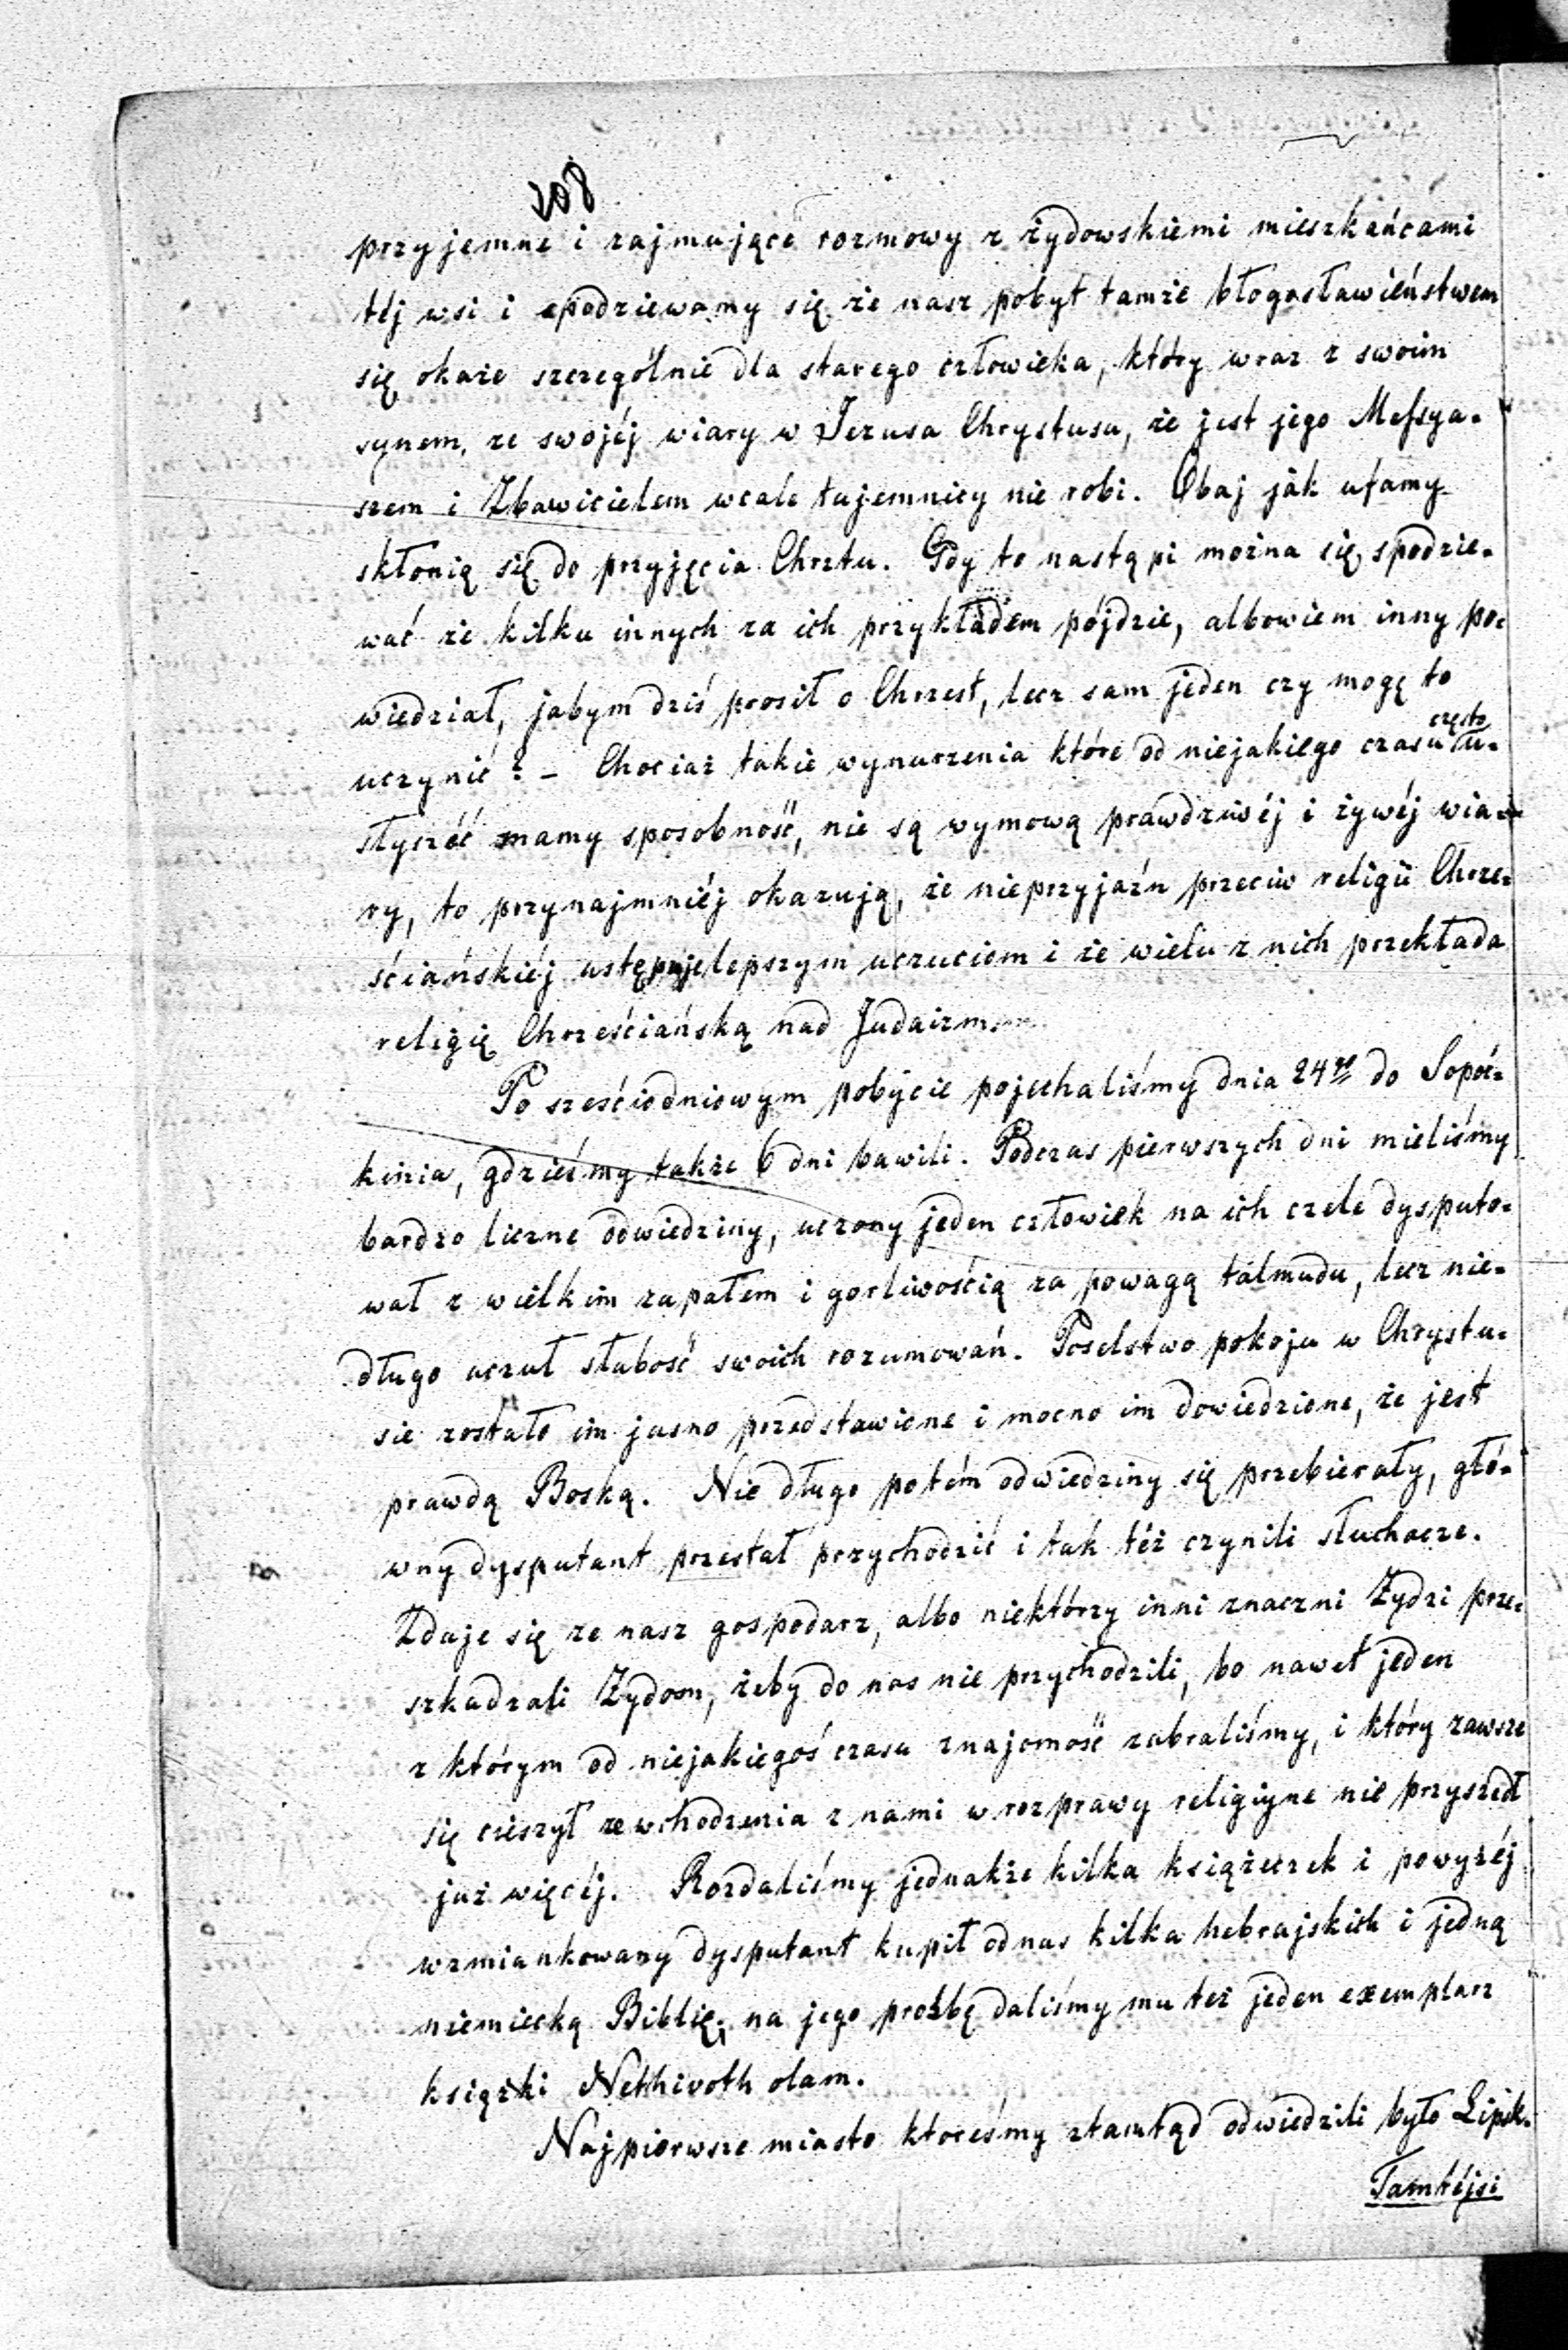 108
przyjemne i zajmujące rozmowy z żydowskiemi mieszkańcami
téj wsi i spodziewamy się że nasz pobyt tamże błogosławieństwem
się okaże szczególnie dla starego człowieka, który wraz z swoim
synem, ze swojéj wiary w Jezusa Chrystusa, że jest jego Mefsya-
szem i Zbawicielem wcale tajemnicy nie robi. Obaj jak ufamy
skłonią się do przyjęcia Chrztu. Gdy to nastąpi można się spodzie-
wać że kilku innych za ich przykładem pójdzie, albowiem inny po-
wiedział, jabym dziś prosił o Chrzest, lecz sam jeden czy mogę to
uczynić? – Chociaż takie wynurzenia które od niejakiego czasu często u-
słyszéć mamy sposobność, nie są wymową prawdziwéj i żywéj wia-
ry, to przynajmniéj okazują, że nieprzyjaźń przeciw religii Chrze-
ściańskiéj ustępuje lepszym uczuciom i że wielu z nich przekłada
religię Chrześciańską nad Judaizm
Po sześciodniowym pobycie pojechaliśmy dnia 24go do Sopoć-
kinia, gdzieśmy także 6 dni bawili. Podczas pierwszych dni mieliśmy
bardzo liczne odwiedziny, uczony jeden człowiek na ich czele dysputo-
wał z wielkim zapałem i gorliwością za powagą talmudu, lecz nie-
długo uczuł słabość swoich rozumowań. Poselstwo pokoju w Chrystu-
sie zostało im jasno przedstawione i mocno im dowiedzione, że jest
prawdą Boską. Nie długo potém odwiedziny się przebierały, głó-
wny dysputant przestał przychodzić i tak téż czynili słuchacze.
Zdaje się że nasz gospodarz, albo niektórzy inni znaczni Żydzi prze-
szkadzali Żydom, żeby do nas nie przychodzili, bo nawet jeden
z którym od niejakiegoś czasu znajomość zabraliśmy, i który zawsze
się cieszył ze wchodzenia z nami w rozprawy religiyne nie przyszedł
już więcéj. Rozdaliśmy jednakże kilka książeczek i powyżéj
wzmiankowany dysputant kupił od nas kilka hebrajskich i jedną
niemiecką Biblię; na jego prośbę daliśmy mu też jeden exemplarz
książki Nethivoth olam.
Najpierwsze miasto któreśmy ztamtąd odwiedzili było Lipsk.
Tamtéjsi